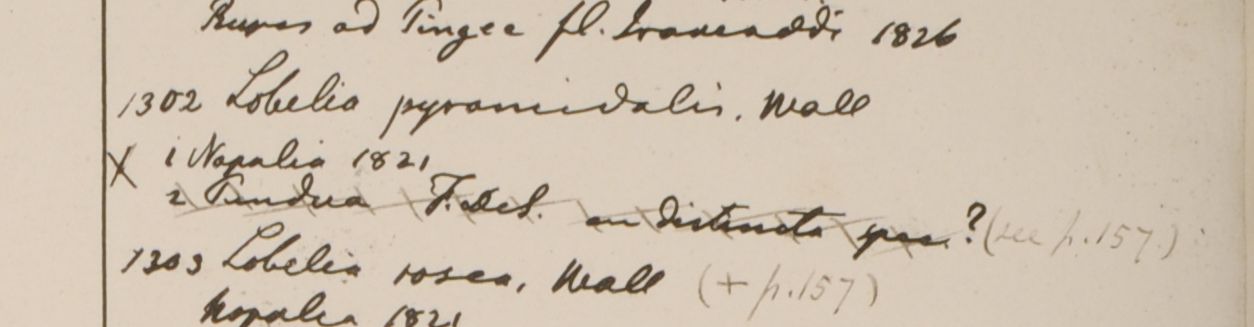 Rupes ad Tingee fl. Irawaddi 1826
1302 Lobelia pyramidalis. Wall
X 1 Napalia 1821
2 Pundua F. De S. an distincta spec.? (see p. 157.)
1303 Lobelia rosea, Wall (+ p. 157)
Napalia 1821